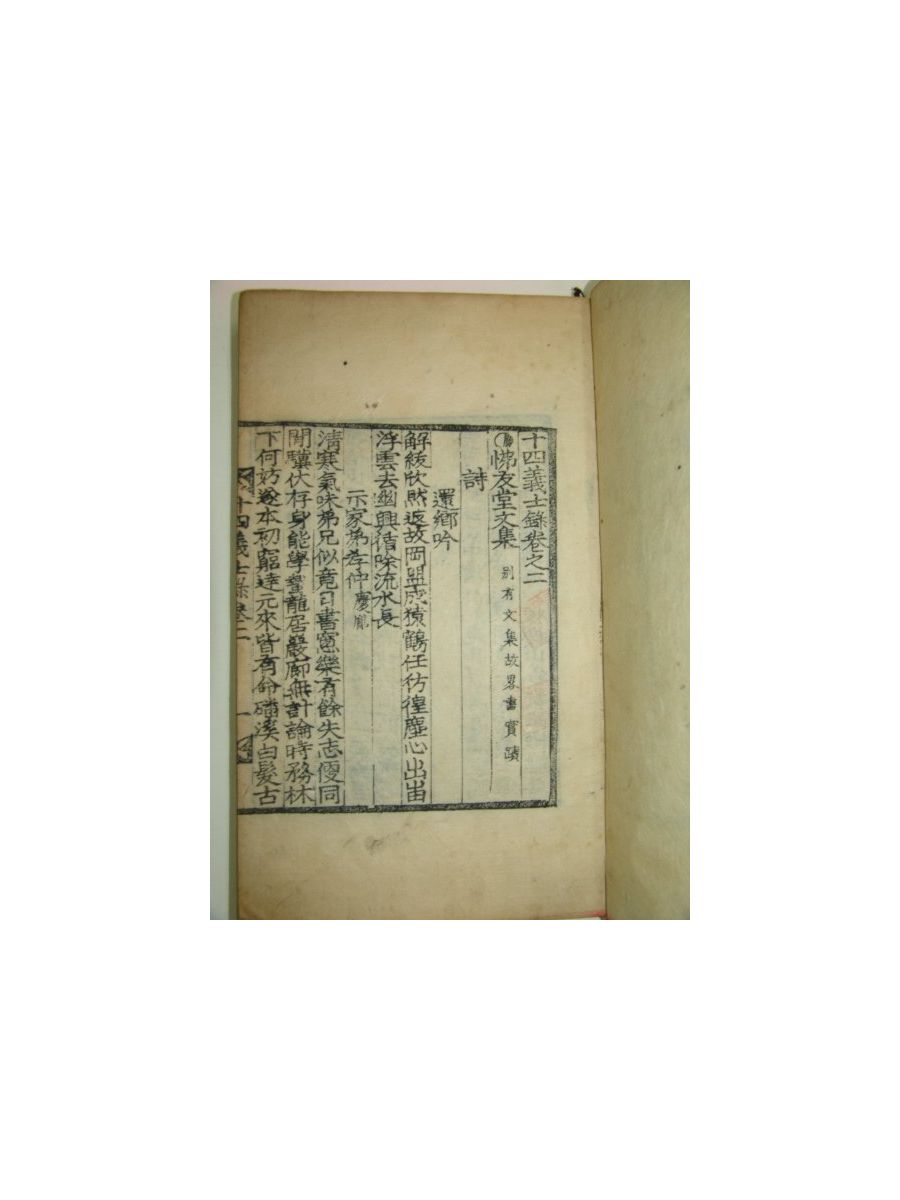 十四義士錄卷之二
悌友堂文集 別有文集故畧書實蹟
詩
還鄉吟
解綬欣然返故岡盟成猿鶴任彷徨塵心出岫
浮雲去幽興循除流水長
示家弟孝仲慶胤
淸寒氣味弟兄似竟日書窓樂有餘失志便同
閒驥伏存身能學蟄龍居巖廊無計論時務林
下何妨遂本初窮達元來皆有命磻溪白髮古
十四義士錄卷二 一